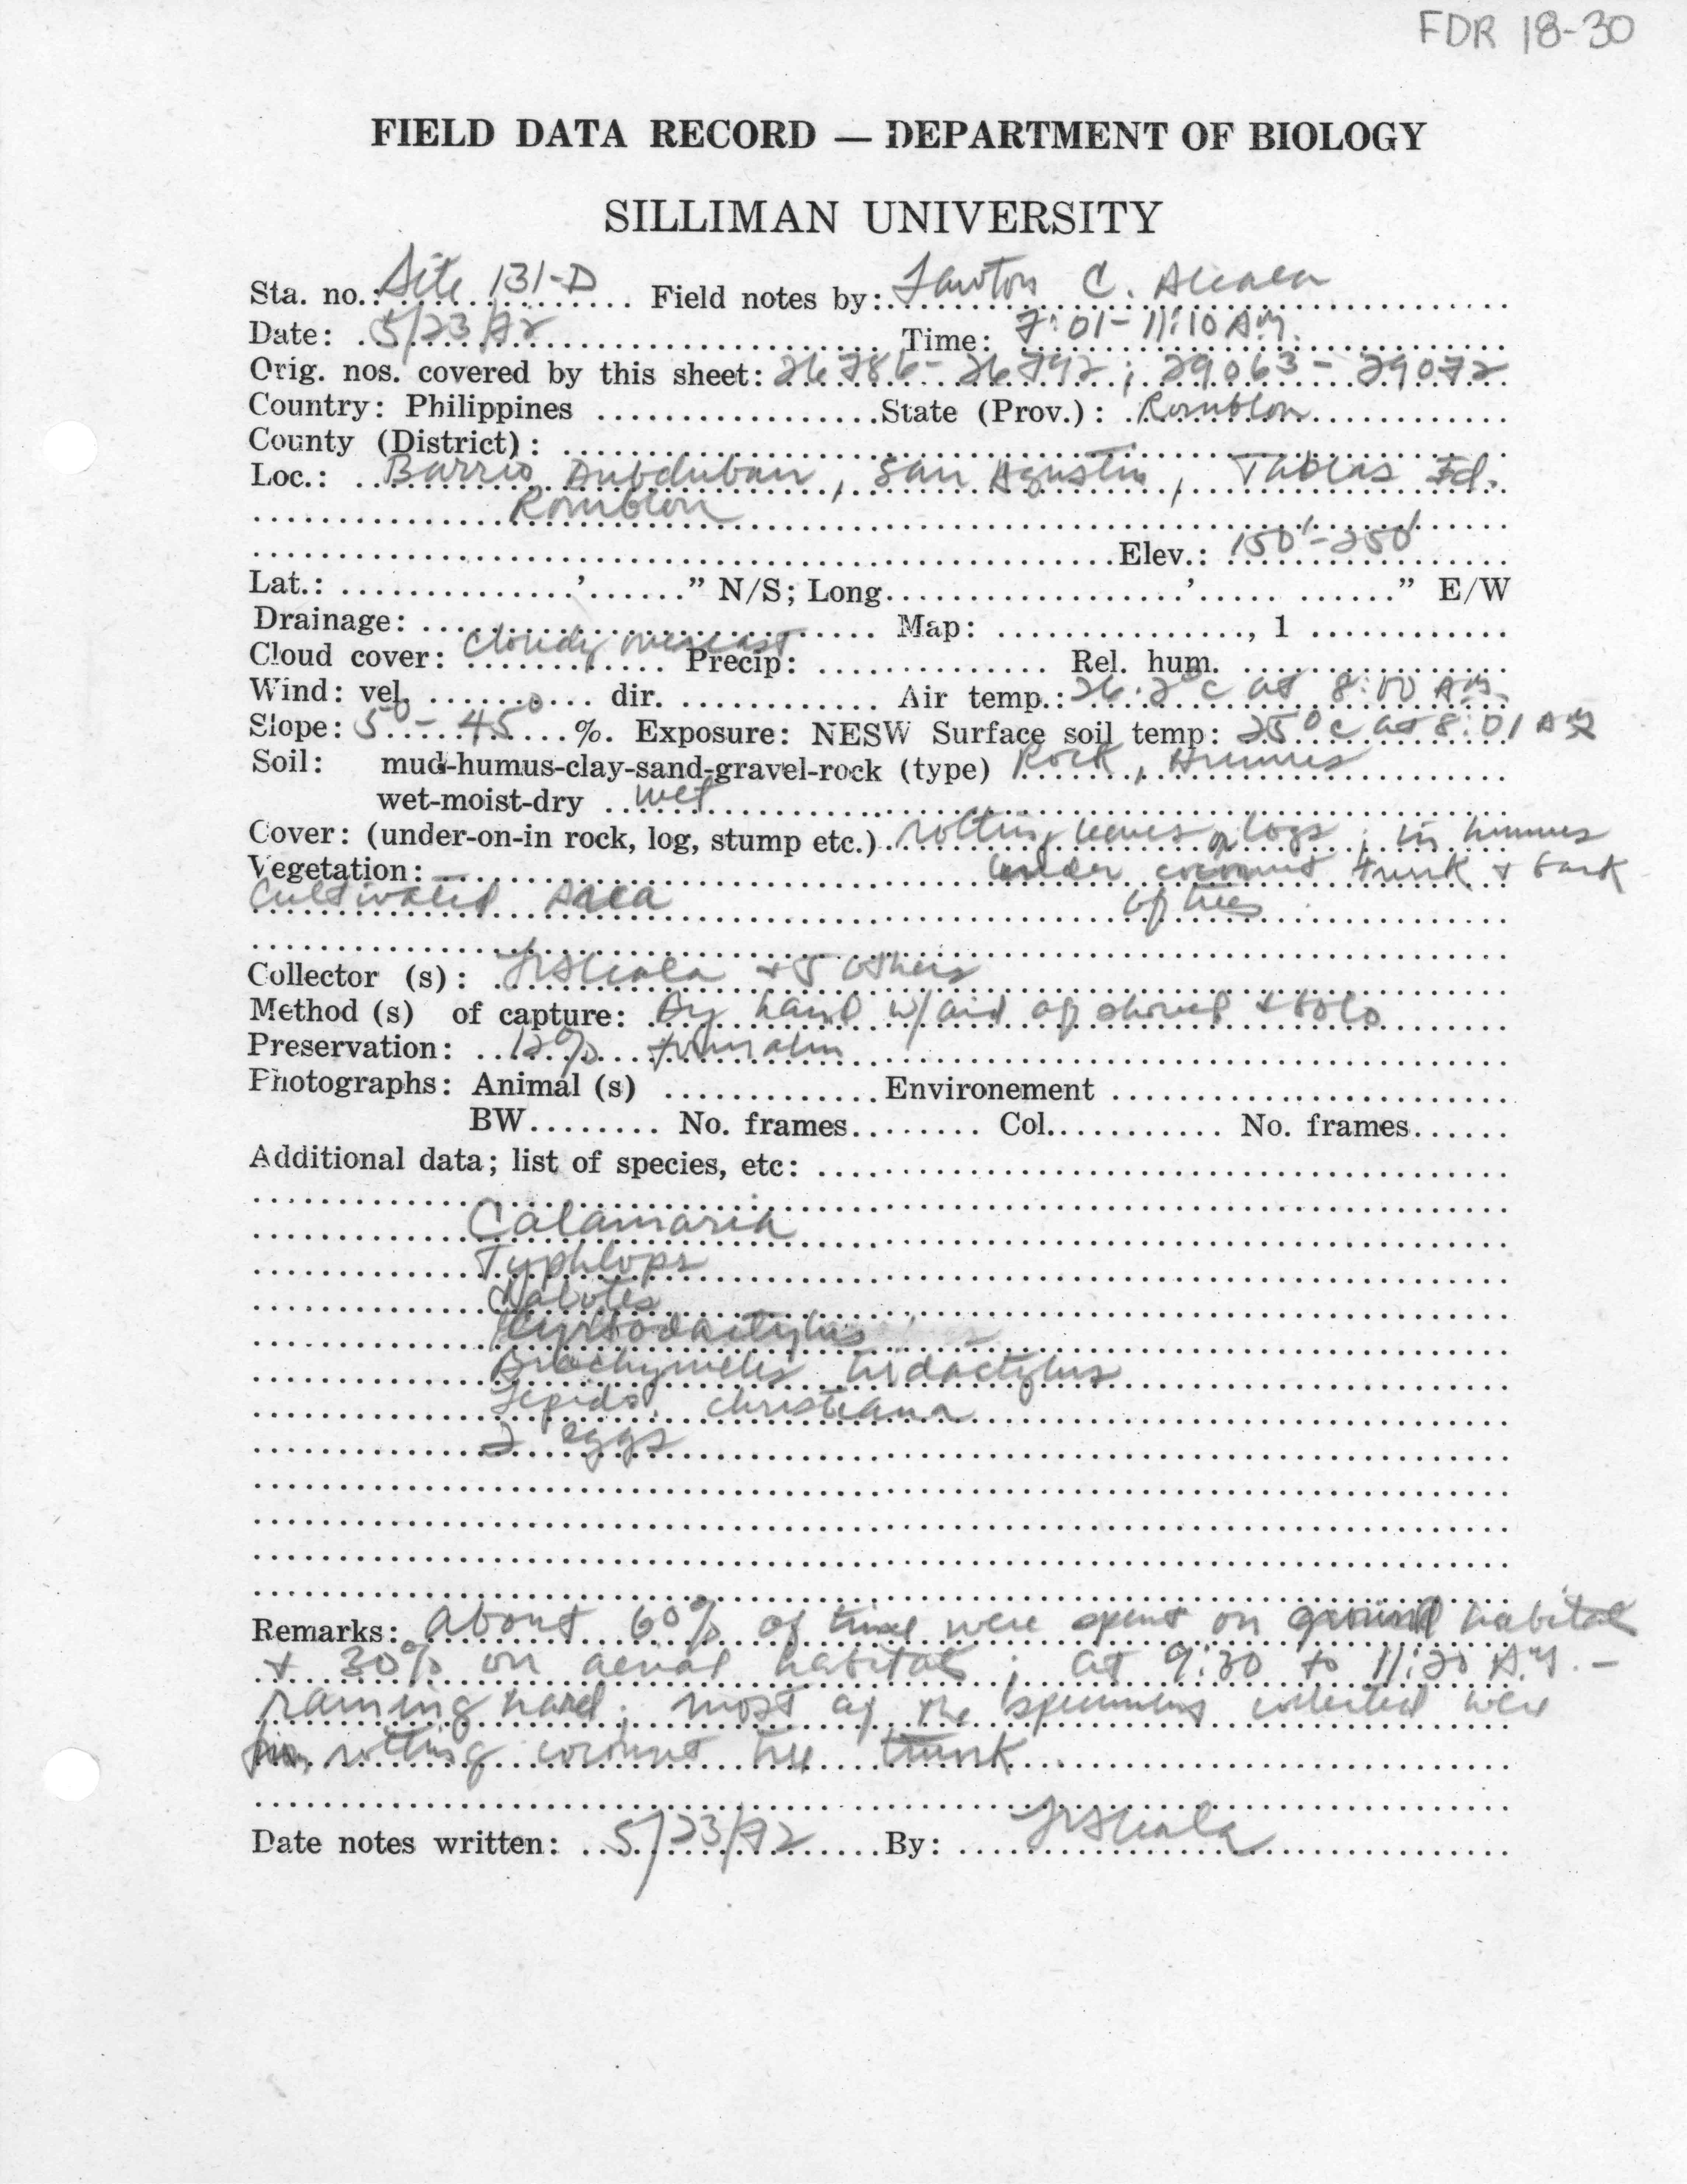 FDR 18-30
FIELD DATA RECORD — DEPARTMENT OF BIOLOGY
SILLIMAN UNIVERSITY
Sta. no.: Site 131-D Field notes by: Lawton C. Alcala
Date: 5/23/72 Time: 7:01-11:10 AM.
Orig. nos. covered by this sheet: 26786-26792; 29063-29072
Country: Philippines State (Prov.): Romblon
County (District):
Loc.: Barrio Dubduban, San Agustin, Tablas Id.
Romblon
Elev.: 150'-250'
Lat.: ' " N/S; Long. ' " E/W
Drainage: Map: , 1
Cloud cover: Cloudy overcast Precip: Rel. hum.
Wind: vel. dir. Air temp.: 26.2°C at 8:00 AM.
Slope: 5°-45° %. Exposure: NESW Surface soil temp: 25°C at 8:01 AM
Soil: mud-humus-clay-sand-gravel-rock (type) Rock, Humus
wet-moist-dry wet
Cover: (under-on-in rock, log, stump etc.) rotting leaves logs; in humus
Vegetation: — under coconut trunk + bark
Cultivated Area of trees
Collector (s): LAlcala + 5 others
Method (s) of capture: By hand w/ aid of shovel + bolo
Preservation: 12% formalin
Photographs: Animal (s) Environement
BW No. frames Col. No. frames
Additional data; list of species, etc:
Calamaria
Typhlops
Calotes
Cyrtodactylus
Brachymeles tridactylus
Lepido. christiana
2 eggs
Remarks: About 60% of time were spent on ground habitat
+ 30% on aerial habitat; at 9:30 to 11:20 A.M. -
raining hard; most of the specimens collected were
from rotting coconut tree trunk
Date notes written: 5/23/72 By: LAlcala